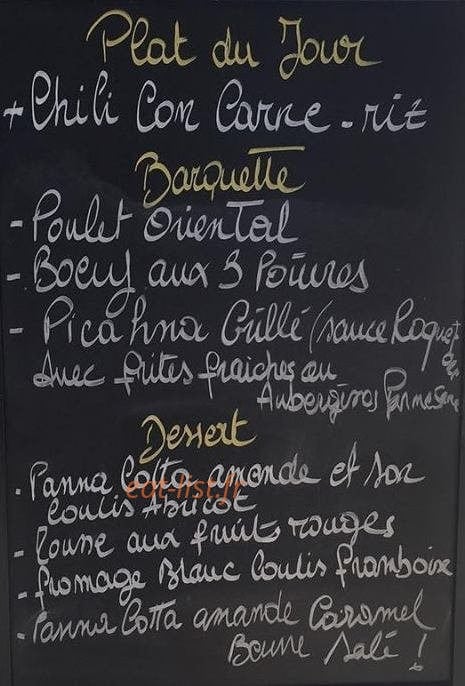 Plat du Jour
+ Chili Con Carne - riz
Barquette
- Poulet Oriental
- Boeuf aux 3 Poivres
- Picahna Grillé (sauce Roquefort
Avec frites fraiches ou
Aubergines Parmesane
Dessert
- Panna Cotta amande et son
coulis Abricot
eat-list.fr
- aux fruits rouges
- fromage Blanc Coulis framboise
- Panna Cotta amande Caramel
Beurre Salé !